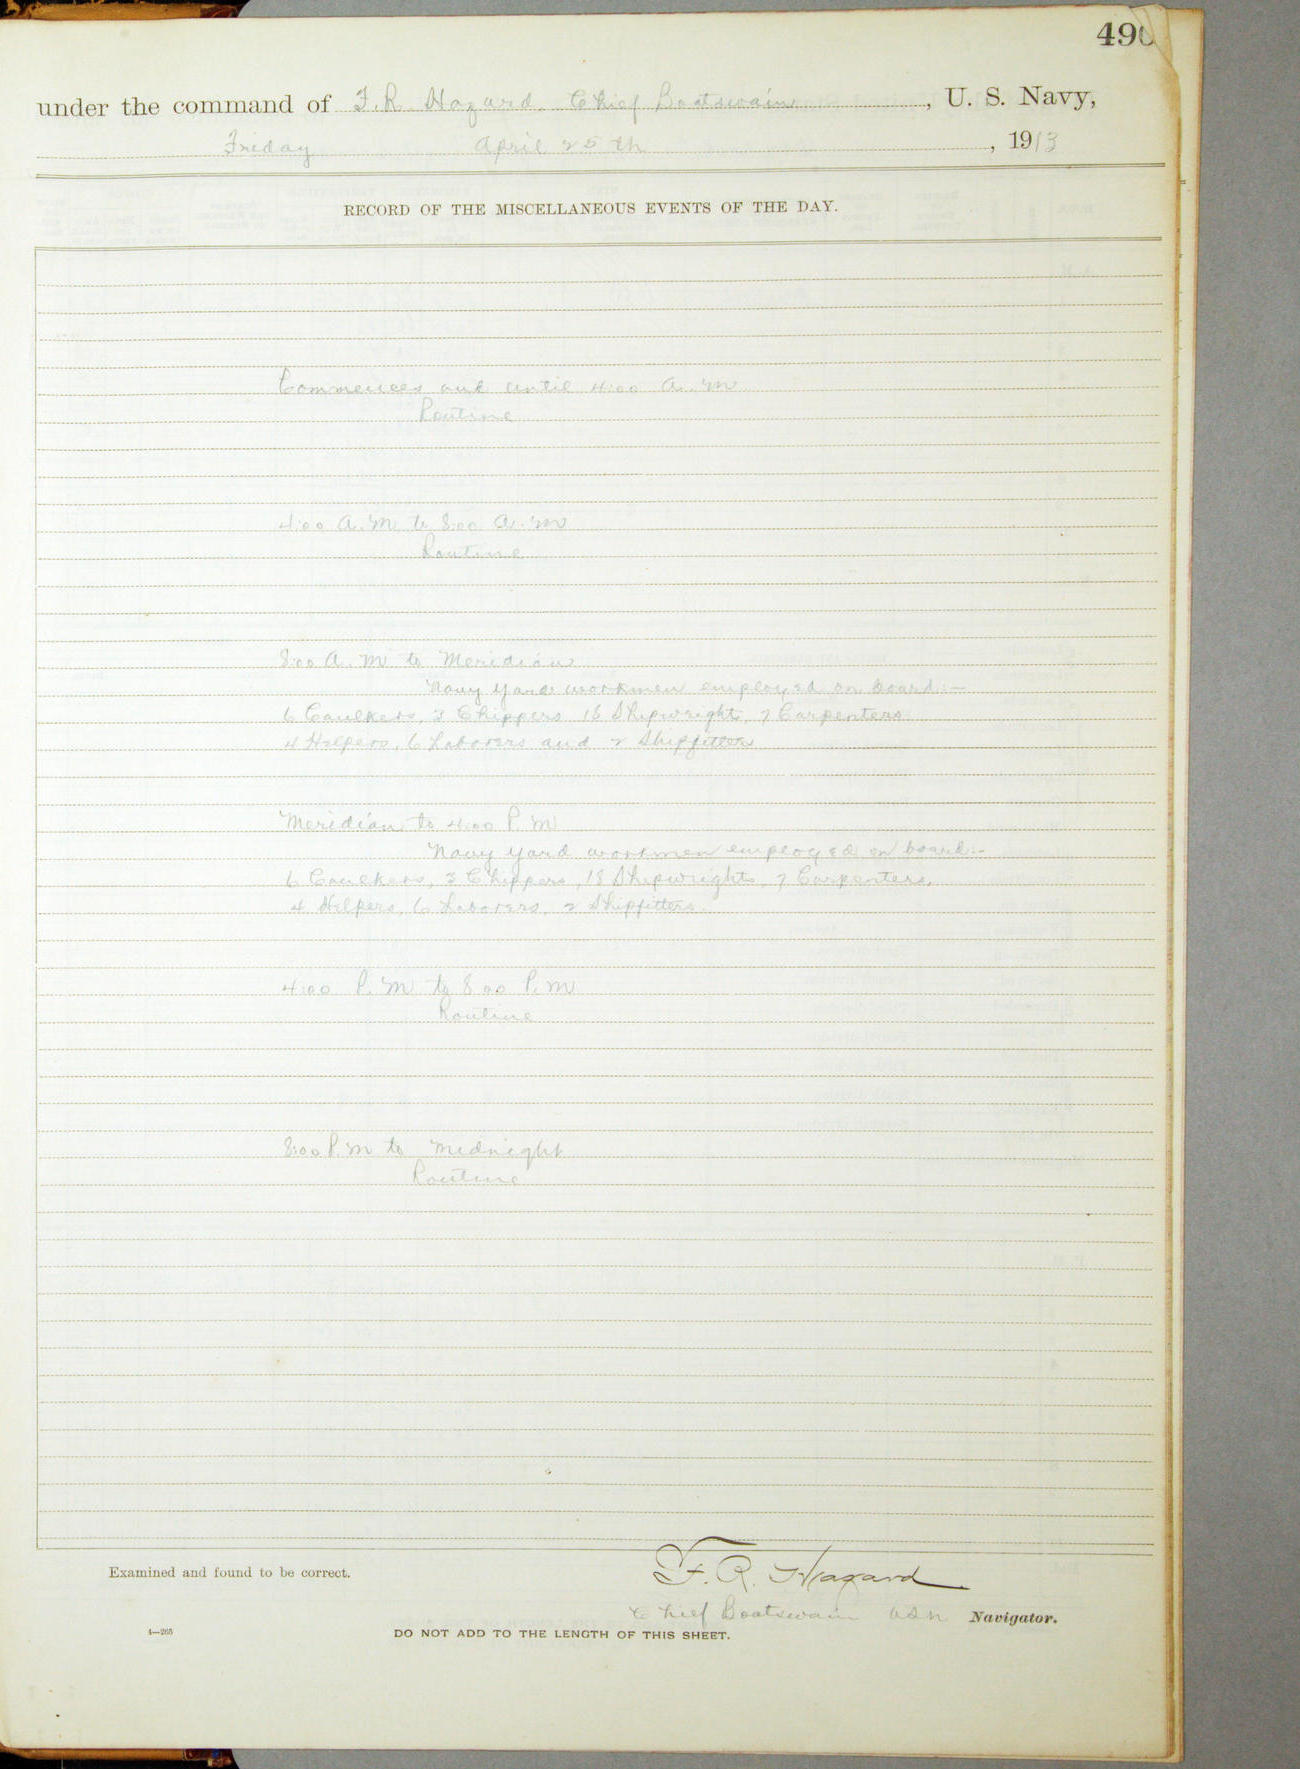 490
under the command of F. R. Hazard Chief Boatswain, U. S. Navy,
Friday April 25th, 1913
RECORD OF THE MISCELLANEOUS EVENTS OF THE DAY.
Commences and until 4:00 A. M
Routine
4:00 A. M to 8:00 A. M
Routine
8:00 A. M to Meridian
Navy Yard workmen employed on board:-
6 Caulkers, 3 Chippers 18 Shipwrights, 7 Carpenters
4 Helpers, 6 Laborers and 2 Shipfitters
Meridian to 4:00 P. M
Navy Yard workmen employed on board:-
6 Caulkers, 3 Chippers, 18 Shipwrights, 7 Carpenters,
4 Helpers, 6 Laborers, 2 Shipfitters.
4:00 P. M to 8:00 P. M
Routine
8:00 P. M to Midnight
Routine
Examined and found to be correct.
F. R. Hazard
Chief Boatswain USN Navigator.
4—265
DO NOT ADD TO THE LENGTH OF THIS SHEET.